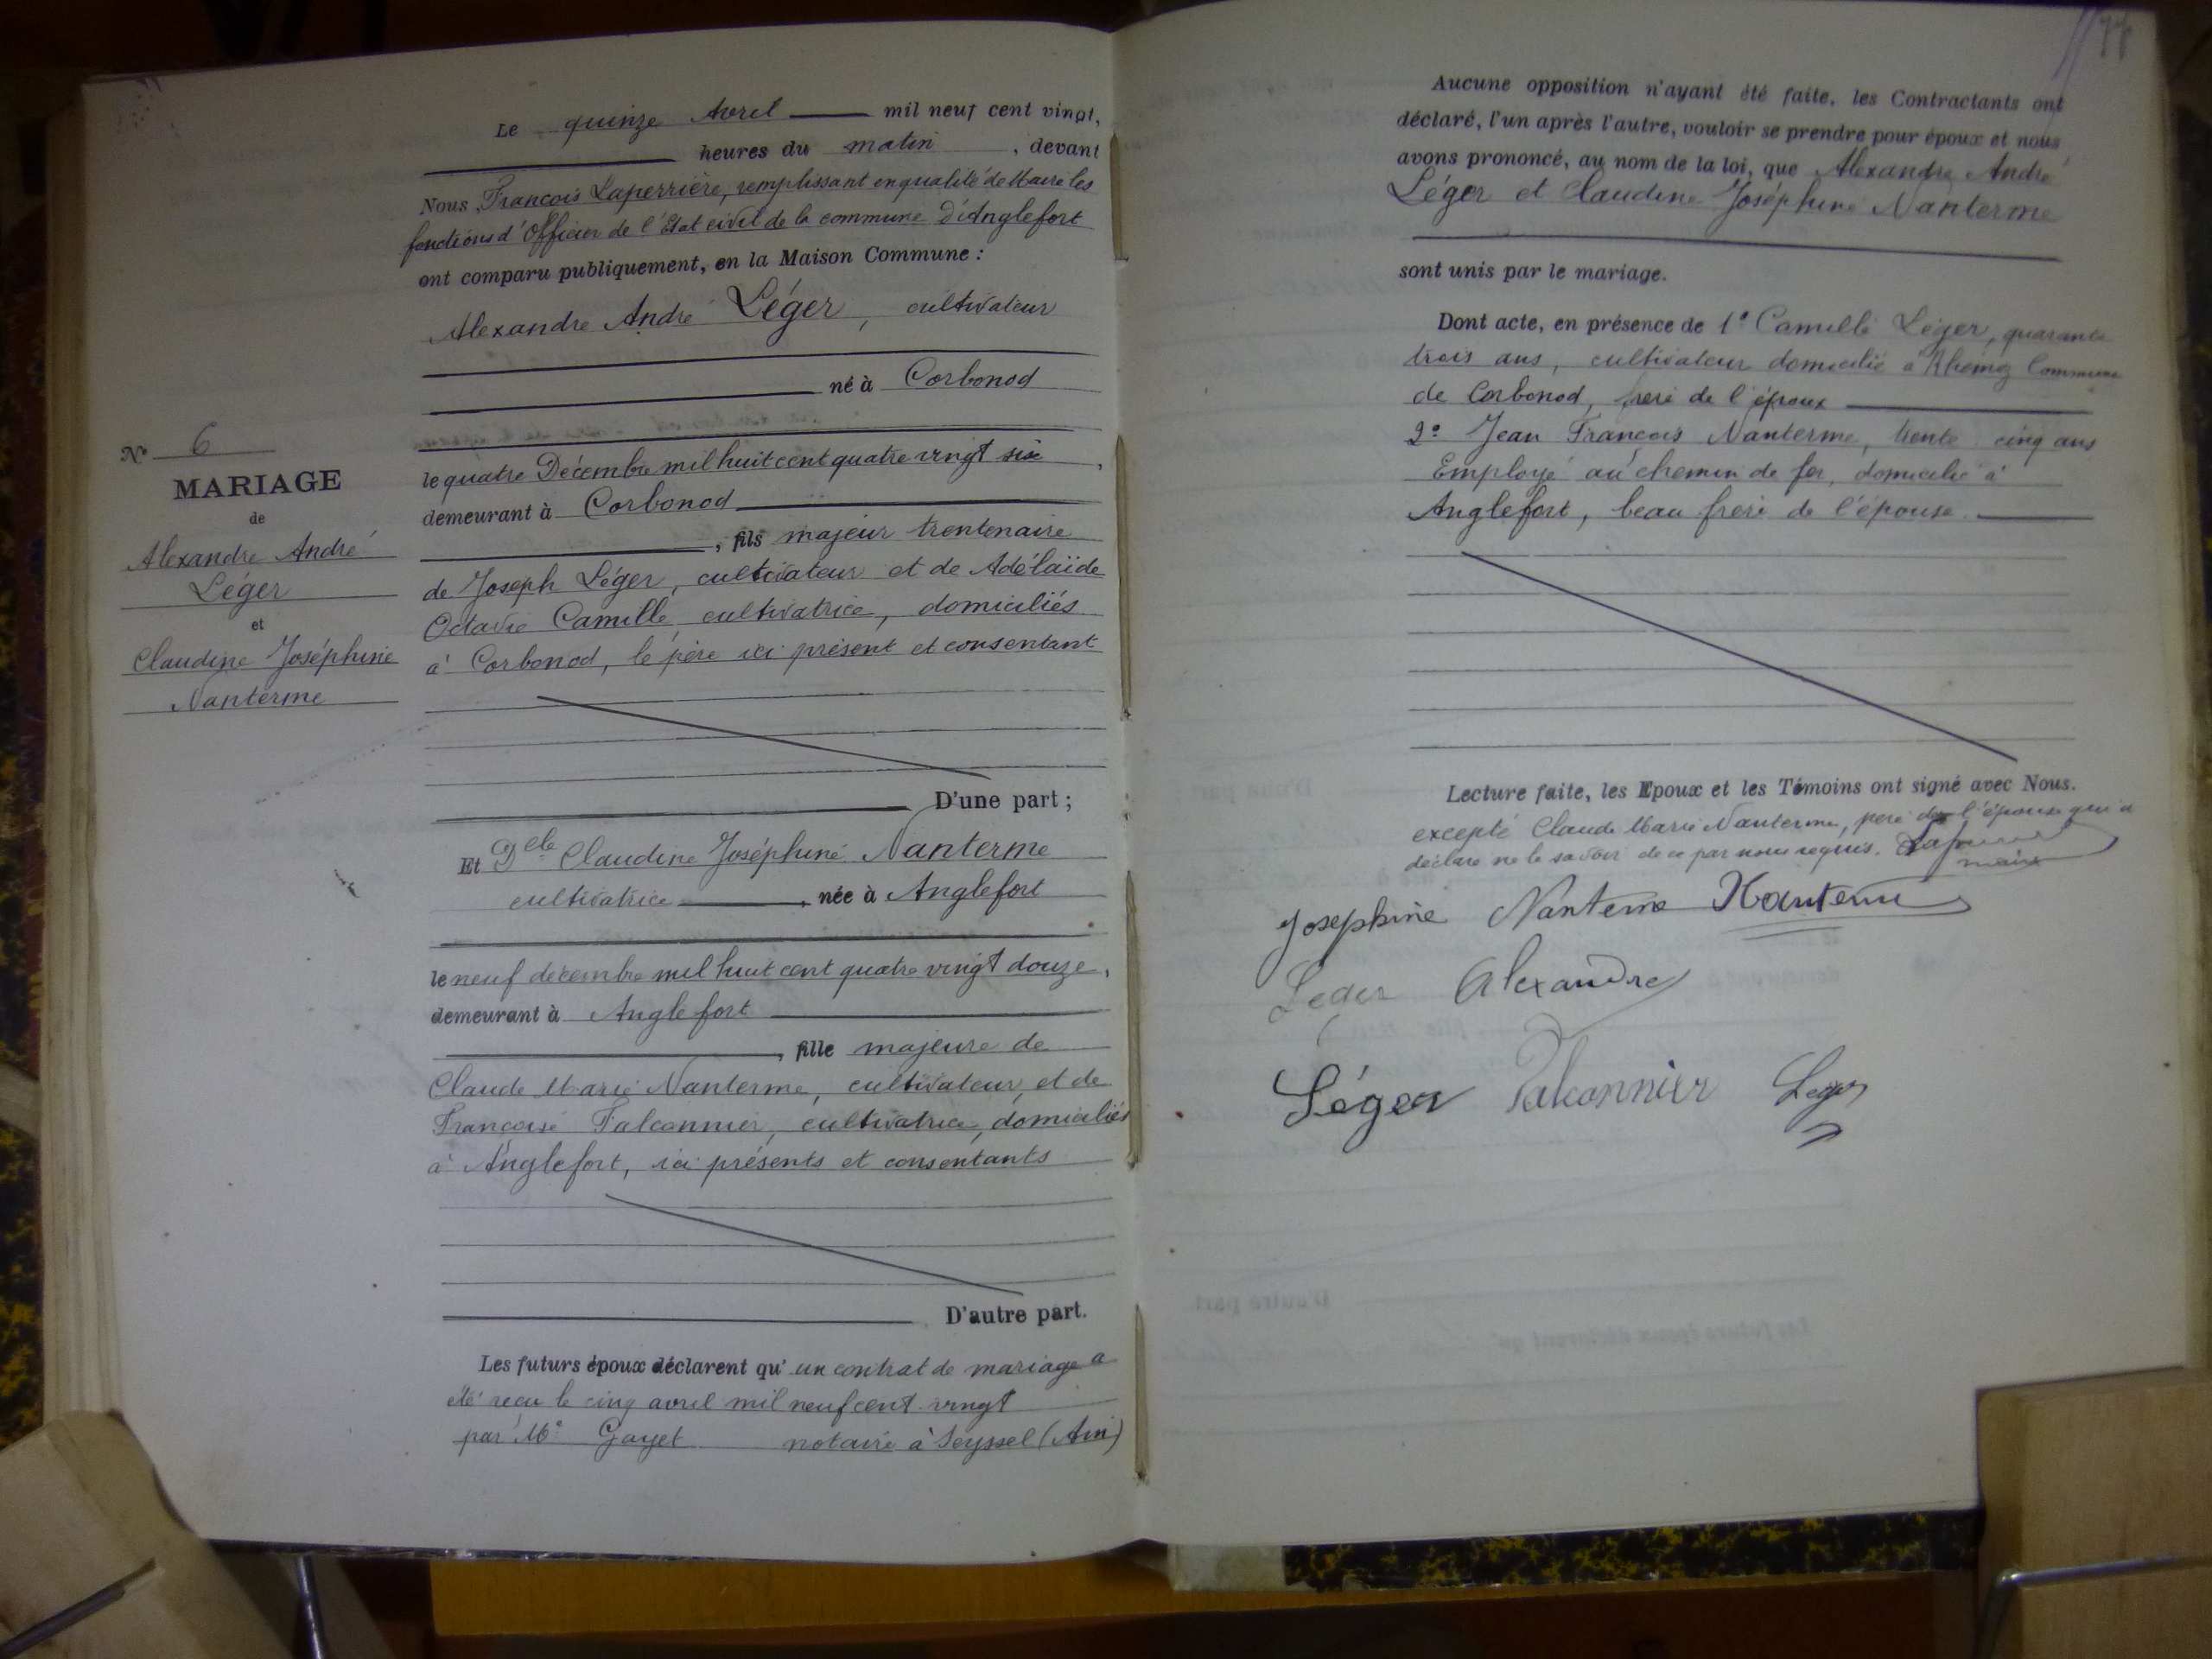 Le quinze Avril mil neuf cent vingt,
heures du matin, devant
Nous François Laperrière, remplissant en qualité de Maire les
fonctions d'Officier de l'Etat civil de la commune D'Anglefort
ont comparu publiquement, en la Maison Commune :
Alexandre André Léger, cultivateur
né à Corbonod
le quatre Décembre mil huit cent quatre vingt six,
demeurant à Corbonod
, fils majeur trentenaire
de Joseph Léger, cultivateur et de Adélaïde
Octavie Camille, cultivatrice, domiciliés
à Corbonod, le père ici présent et consentant
D'une part ;
Et Delle Claudine Joséphine Nanterme
cultivatrice, née à Anglefort
le neuf décembre mil huit cent quatre vingt douze,
demeurant à Anglefort
, fille majeure de
Claude Marie Nanterme, cultivateur, et de
Françoise Falconnier, cultivatrice, domiciliés
à Anglefort, ici présents et consentants
D'autre part.
Les futurs époux déclarent qu'un contrat de mariage a
été reçu le cinq avril mil neuf cent vingt
par Me Gayet notaire à Seyssel (Ain)
N° 6
MARIAGE
de
Alexandre André
Léger
et
Claudine Joséphine
Nanterme
Aucune opposition n'ayant été faite, les Contractants ont
déclaré, l'un après l'autre, vouloir se prendre pour époux et nous
avons prononcé, au nom de la loi, que Alexandre André
Léger et Claudine Joséphine Nanterme
sont unis par le mariage.
Dont acte, en présence de 1° Camille Léger, quarante
trois ans, cultivateur domicilié à Rhémoz Commune
de Corbonod, frère de l'époux
2° Jean François Nanterme, trente cinq ans
Employé au chemin de fer, domicilié à
Anglefort, beau frère de l'épouse.
Lecture faite, les Epoux et les Témoins ont signé avec Nous.
excepté Claude Marie Nanterme, père de l'épouse qui a
déclaré ne le savoir de ce par nous requis.
maire
Josephine Nanterme Nanterme
Leger Alexandre
Léger Falconnier Leger